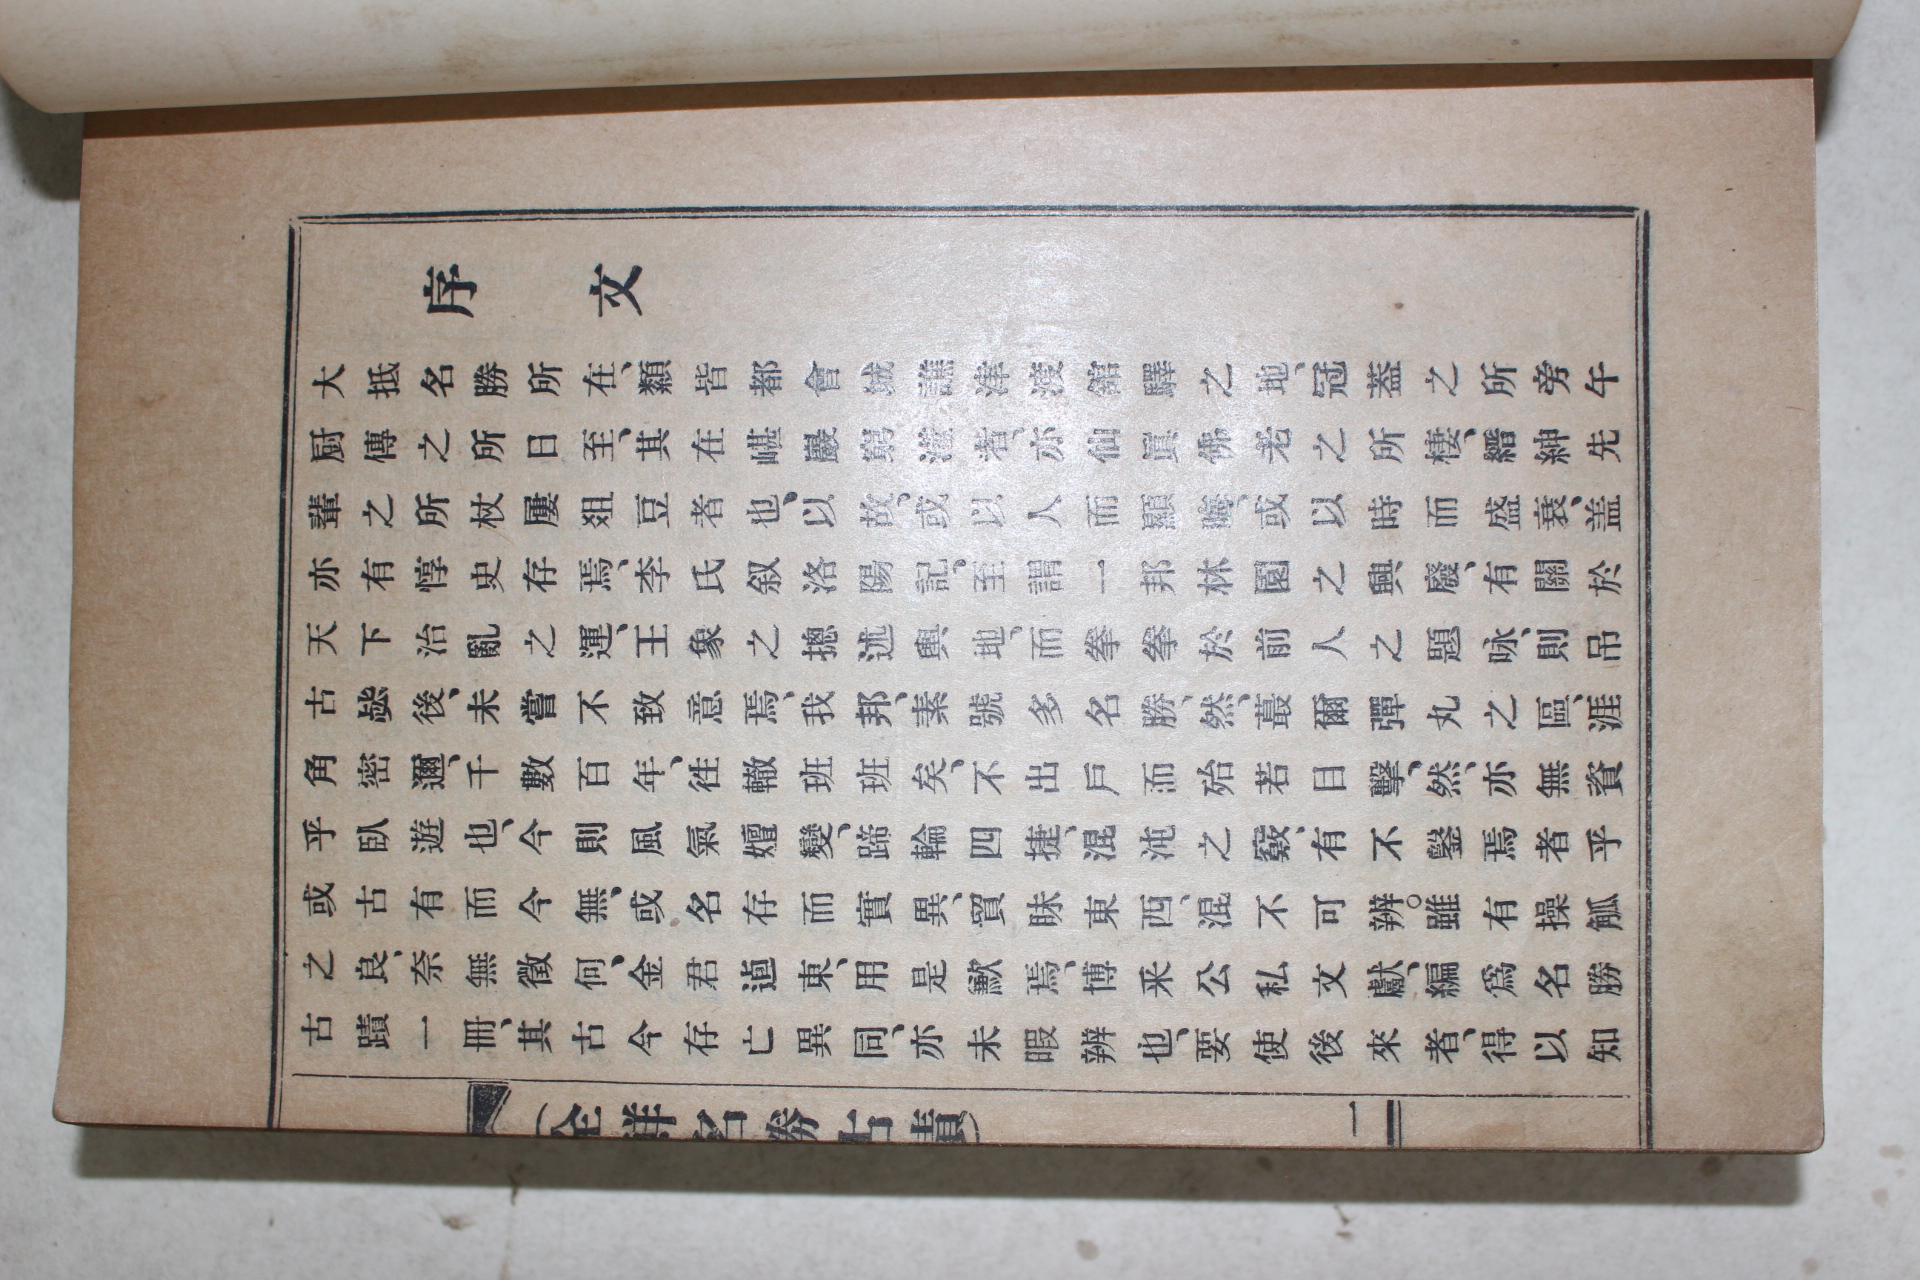 序文
大抵名勝所在、類皆都會譙津渡舘驛之地、冠盖之所旁午
厨傳之所日至、其在嵁巖窮澨者、亦仙眞佛老之所棲、縉紳先
輩之所杖屨爼豆者也、以故、或以人而顯晦、或以時而盛衰、盖
亦有惇史存焉、李氏叙洛陽記、至謂一邦林園之興廢、有關於
天下治亂之運、王象之摠述輿地、而拳拳於前人之題咏、則吊
古毖後、未嘗不致意焉、我邦、素號多名勝、然、蕞爾彈丸之區、涯
角密邇、千數百年、徃轍班班矣、不出戶而殆若目擊、然、亦無資
乎臥遊也、今則風氣嬗變、蹄輪四捷、混沌之竅、有不鑿焉者乎
或古有而今無、或名存而實異、貿眛東西、混不可辨。雖有操觚
之良、奈無徵何、金君逌東、用是歉焉、博釆公私文獻、編爲名勝
古蹟一冊、其古今存亡異同、亦未暇辨也、要使後來者、得以知
(全鮮名勝古蹟) 一